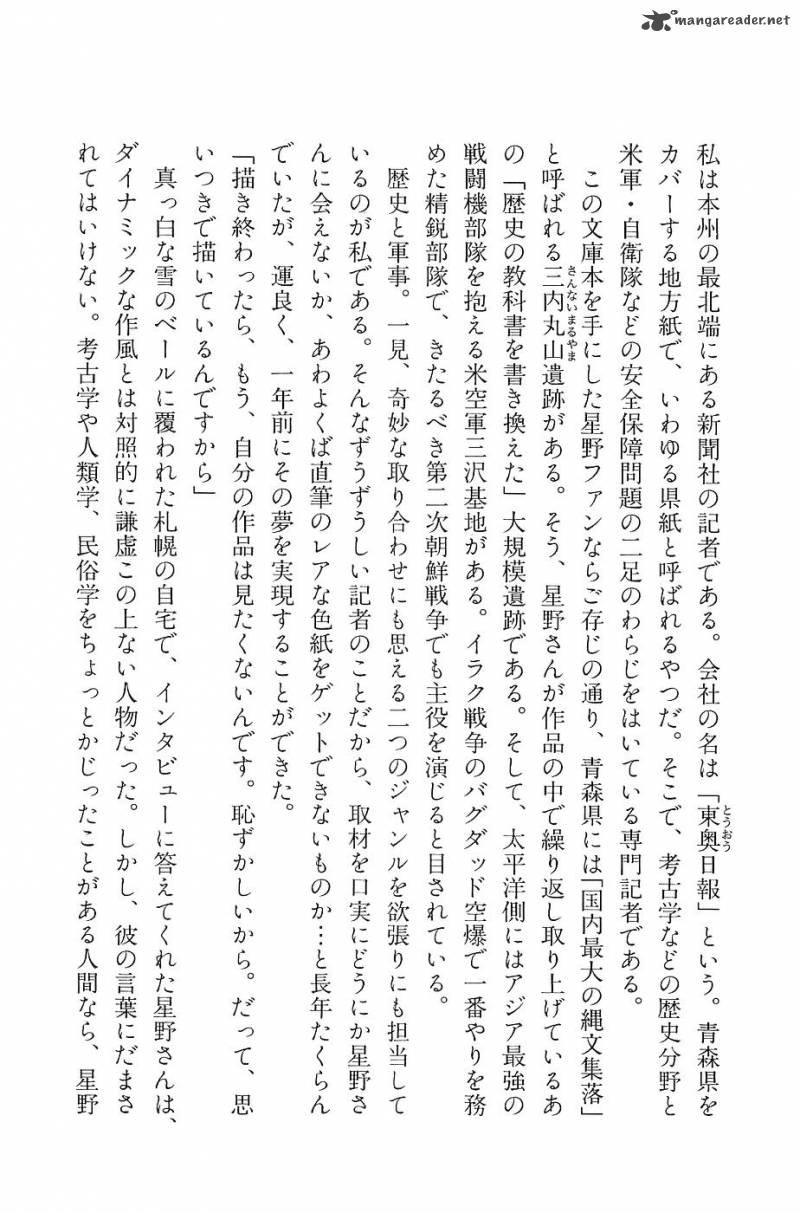 mangareader.net
私は本州の最北端にある新聞社の記者である。会社の名は「東奥日報」という。青森県を
とうおう
カバーする地方紙で、いわゆる県紙と呼ばれるやつだ。そこで、考古学などの歴史分野と
米軍・自衛隊などの安全保障問題の二足のわらじをはいている専門記者である。
この文庫本を手にした星野ファンならご存じの通り、青森県には「国内最大の縄文集落」
と呼ばれる三内丸山遺跡がある。そう、星野さんが作品の中で繰り返し取り上げているあ
さんないまるやま
の「歴史の教科書を書き換えた」大規模遺跡である。そして、太平洋側にはアジア最強の
戦闘機部隊を抱える米空軍三沢基地がある。イラク戦争のバグダッド空爆で一番やりを務
めた精鋭部隊で、きたるべき第二次朝鮮戦争でも主役を演じると目されている。
歴史と軍事。一見、奇妙な取り合わせにも思える二つのジャンルを欲張りにも担当して
いるのが私である。そんなずうずうしい記者のことだから、取材を口実にどうにか星野さ
んに会えないか、あわよくば直筆のレアな色紙をゲットできないものか…と長年たくらん
でいたが、運良く、一年前にその夢を実現することができた。
「描き終わったら、もう、自分の作品は見たくないんです。恥ずかしいから。だって、思
いつきで描いているんですから」
真っ白な雪のベールに覆われた札幌の自宅で、インタビューに答えてくれた星野さんは、
ダイナミックな作風とは対照的に謙虚この上ない人物だった。しかし、彼の言葉にだまさ
れてはいけない。考古学や人類学、民俗学をちょっとかじったことがある人間なら、星野